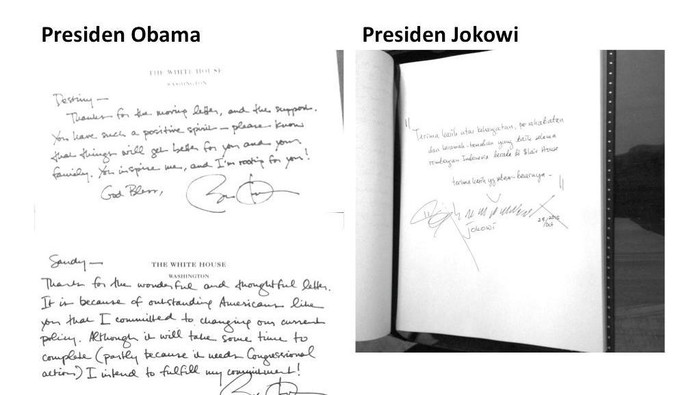 Presiden Obama
THE WHITE HOUSE
WASHINGTON
Destiny—
Thanks for the moving letter, and the support.
You have such a positive spirit — please know
that things will get better for you and your
family. You inspire me, and I'm rooting for you!
God Bless,
Sandy—
THE WHITE HOUSE
WASHINGTON
Thanks for the wonderful and thoughtful letter.
It is because of outstanding Americans like
you that I committed to changing our current
policy. Although it will take some time to
complete (partly because it needs Congressional
action) I intend to fulfill my commitment!
Presiden Jokowi
"Terima kasih atas kehangatan, persahabatan
dan keramah-tamahan yang baik selama
rombongan Indonesia berada di Blair House
terima kasih yg sebesar-besarnya - "
Jokowi